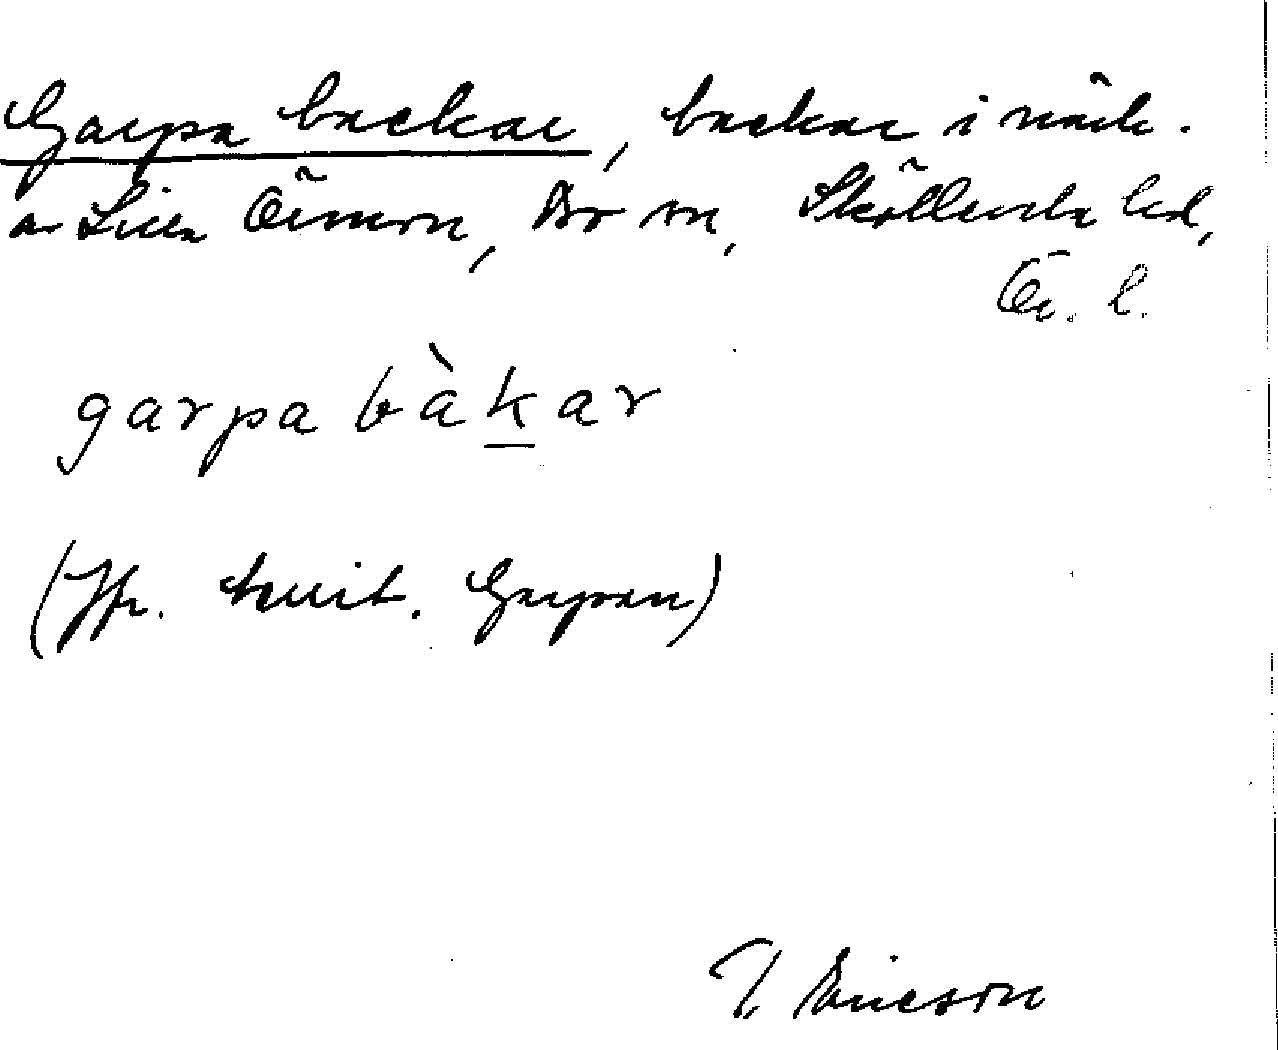 Garpa backar, backar i närh.
av Lilla Öimon, Bro sn, Sköllersta hd,
Ör. l.
garpa bàkar
(Jfr. kvit. Garpan)
T Ericson